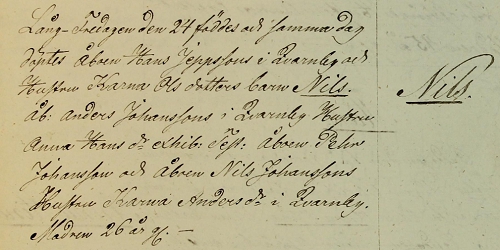 Lång-Fredagen den 24 föddes och samma dag
döptes Åboen Hans Jeppssons i Qvarnby och
Hustrun Karna Ols dotters barn Nils.
Åb: Anders Johanssons i Qvarnby Hustru
Anna Hans dr exhib: Test: Åboen Pehr
Johansson och Åboen Nils Johanssons
Hustru Karna Anders dr i Qvarnby.
Modren 26 år g.
Nils.